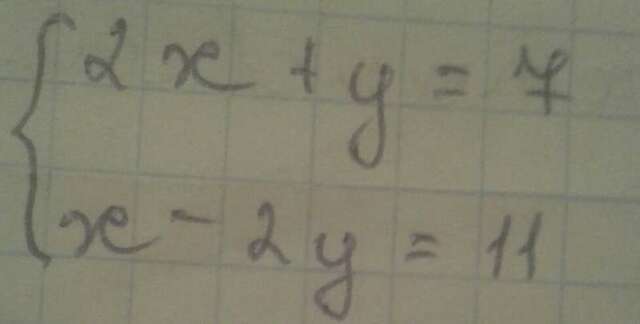 2x + y = 7
x - 2y = 11